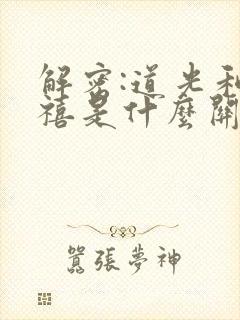 解密:道光和
禧是什麼關
囂張夢神